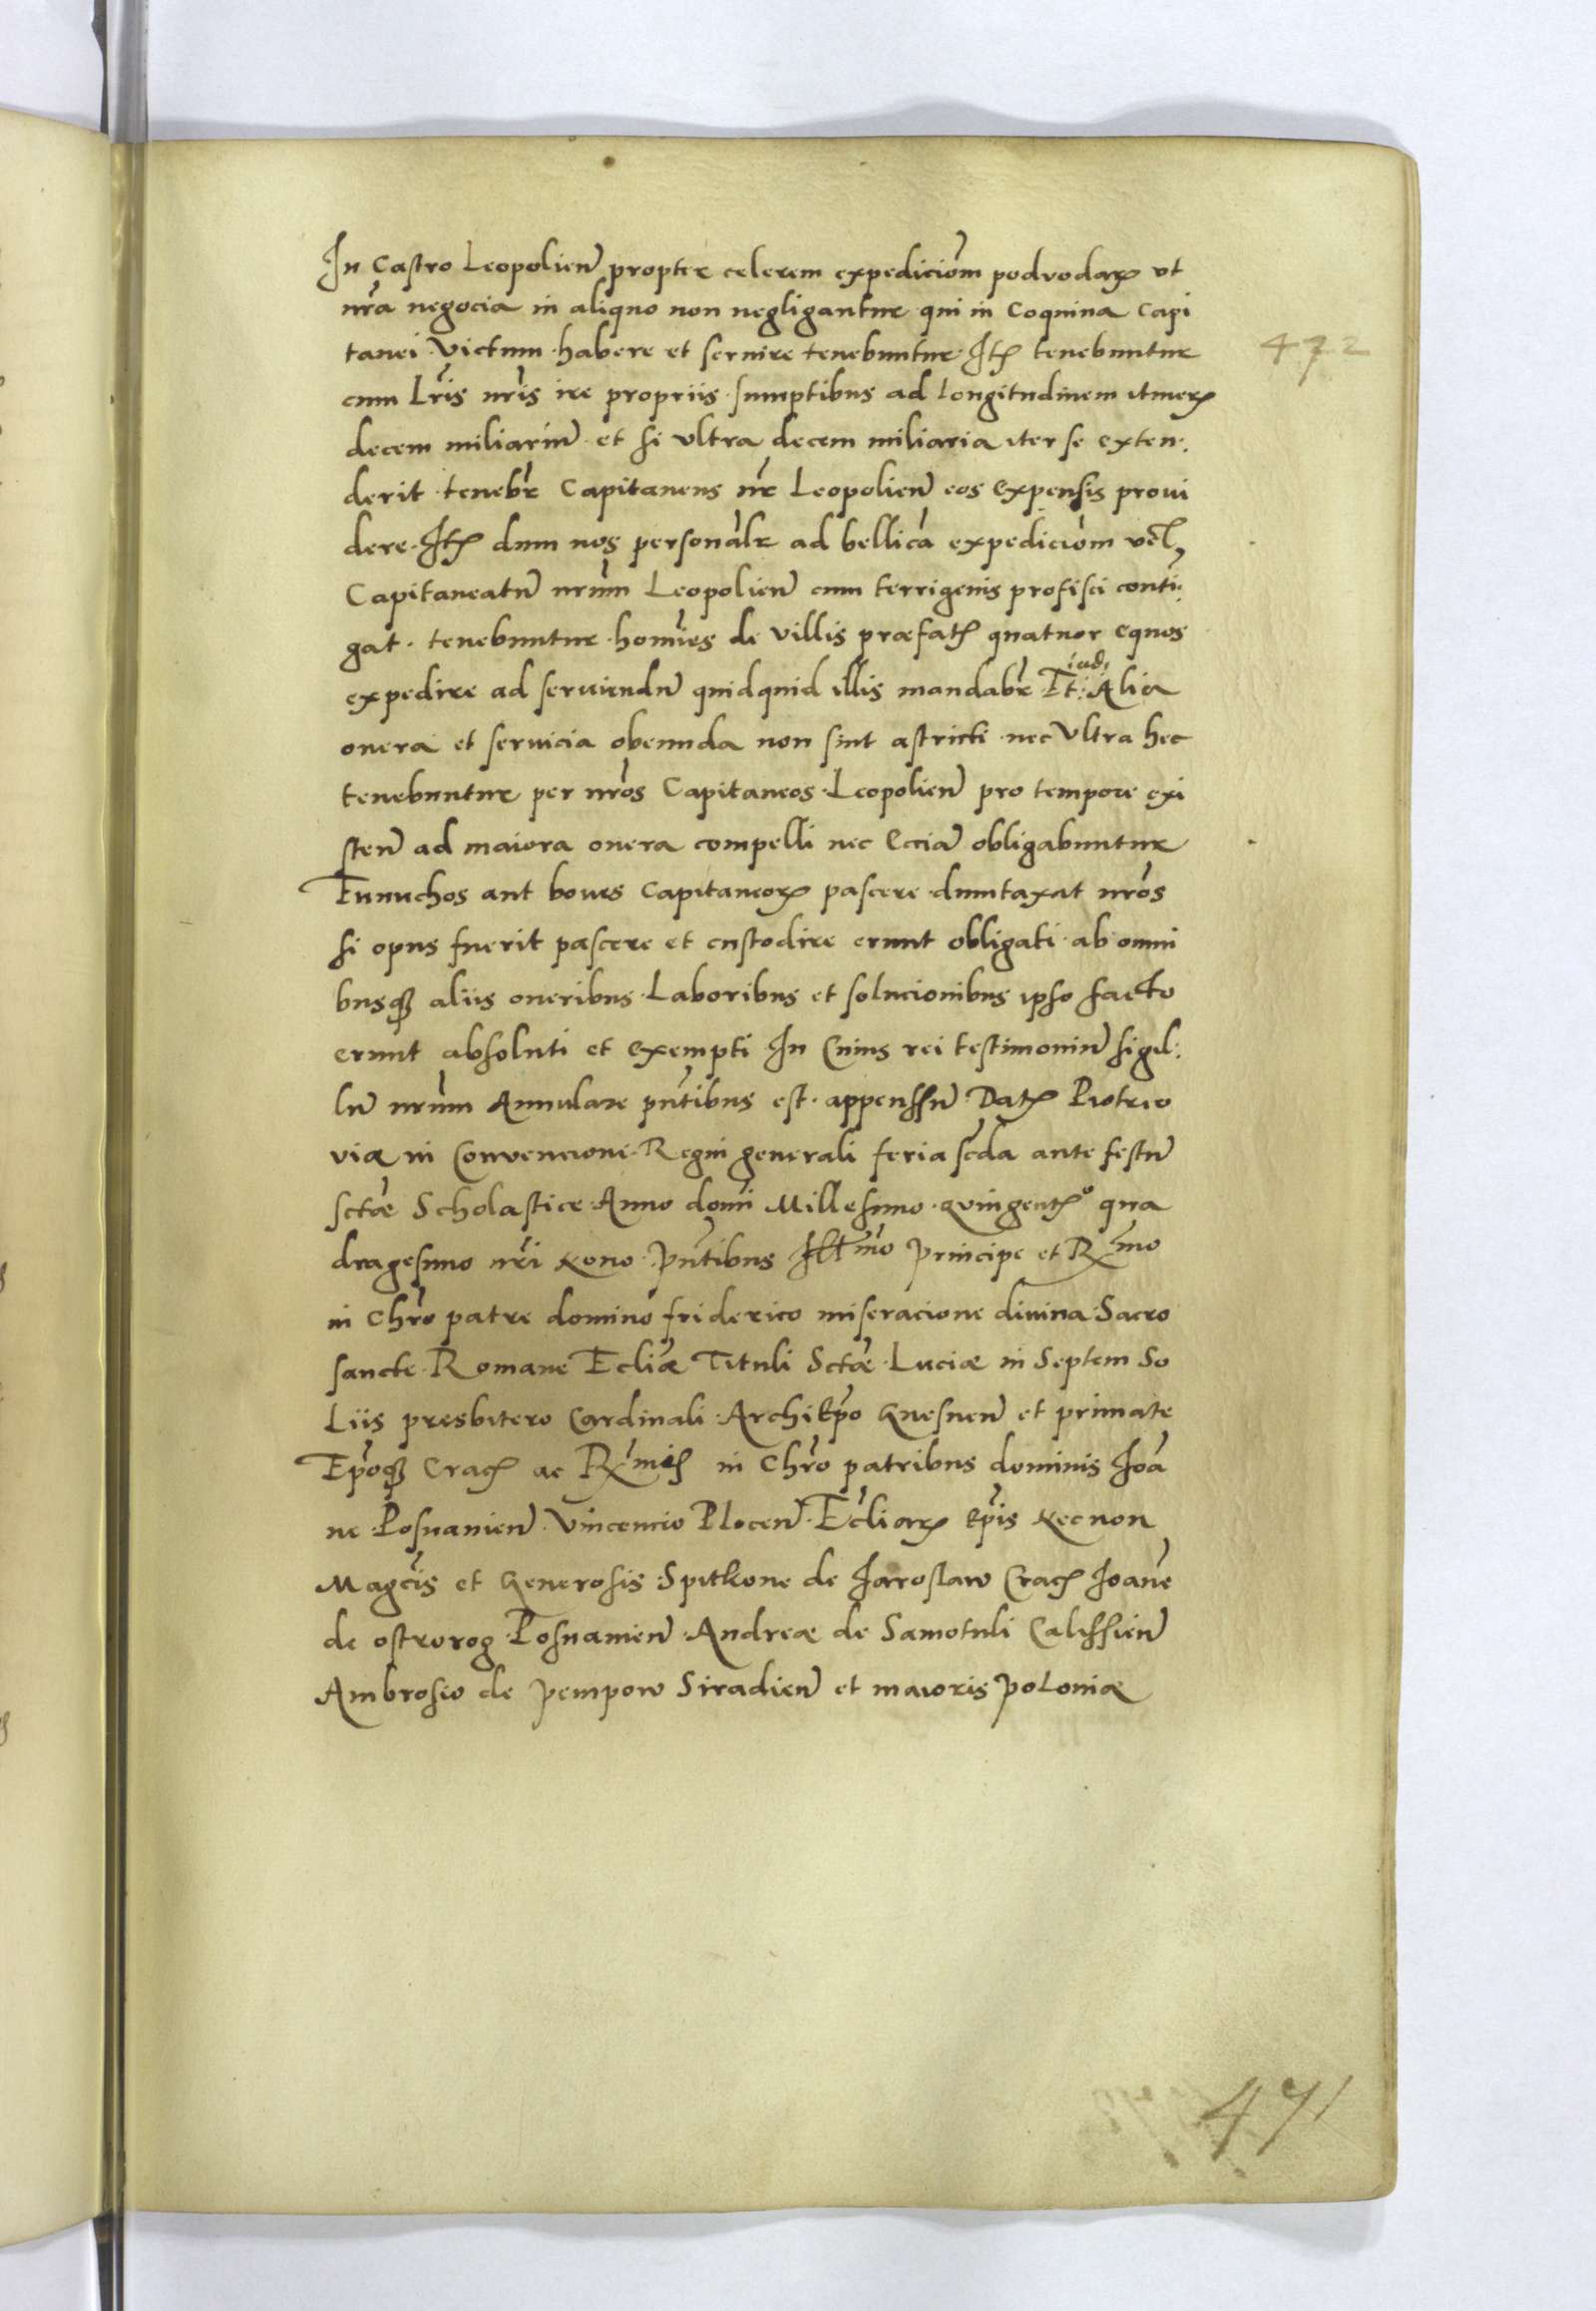 In Castro Leopolien̄ propter celerem expedicioēm podvodaꝝ vt
nr̄a negocia in aliquo non negligantur qui in Coquina Capi
tanei Victum habere et seruire tenebuntur Itꝫ tenebuntur
472
cum Lr̄is nr̄is ire propriis sumptibus ad longitudinem itinerꝫ
decem miliariū et si vltra decem miliaria iter se exten:
derit tenebr̄ Capitaneus nr̄ Leopolien̄ eos expensis proui
dere Itꝫ dum nos personālr ad bellicā expediciōm vel
Capitaneatū nrūm Leopolien̄ cum terrigenis profisci conti:
gat tenebuntur homīes de villis præfatꝫ quatuor equos
expedire ad seruiendū quidquid illis mandabr̄ Et: iad Alia
onera et seruicia obeunda non sint astricti nec Vltra hec
tenebuntur per nrōs Capitaneos Leopolien̄ pro tempore exi
sten̄ ad maiora onera compelli nec Eciā obligabuntur
Eunuchos aut boues Capitaneoꝝ pascere dumtaxat nrōs
si opus fuerit pascere et custodire erunt obligati ab omni
busqꝫ aliis oneribus Laboribus et solucionibus ipso facto
erunt absoluti et exempti In Cuius rei testimoniū sigil:
lū nrūm Annulare pn̄tibus est appenssū Datꝫ Piotrco
viæ in Convencione Regni generali feria scd̄a ante festū
sctǣ Scholastice Anno domī Millesimo quingentꝫº qua
dragesimo nr̄i Nono Pn̄tibus Illmō Principe et Rxmō
in Chrō patre domino friderico miseracione divina Sacro
sancte Romane Ecliǣ Tituli Sctǣ Luciæ in Septem So
Liis presbitero Cardinali Archiepō Gnesnen̄ et primate
Epōqꝫ Cracꝫ ac Rxmīs in Chrō patribus dominis Ioā
ne Posnanien̄ Vincencio Plocen̄ Ecl̄iaꝝ Epīs Necnon
Magcīs et Generosis Spitkone de Iaroslaw Cracꝫ Ioanē
de ostrorog Posnanien̄ Andreæ de Samotuli Calissien̄
Ambrosio de Pempow Siradien̄ et maioris Poloniæ
471